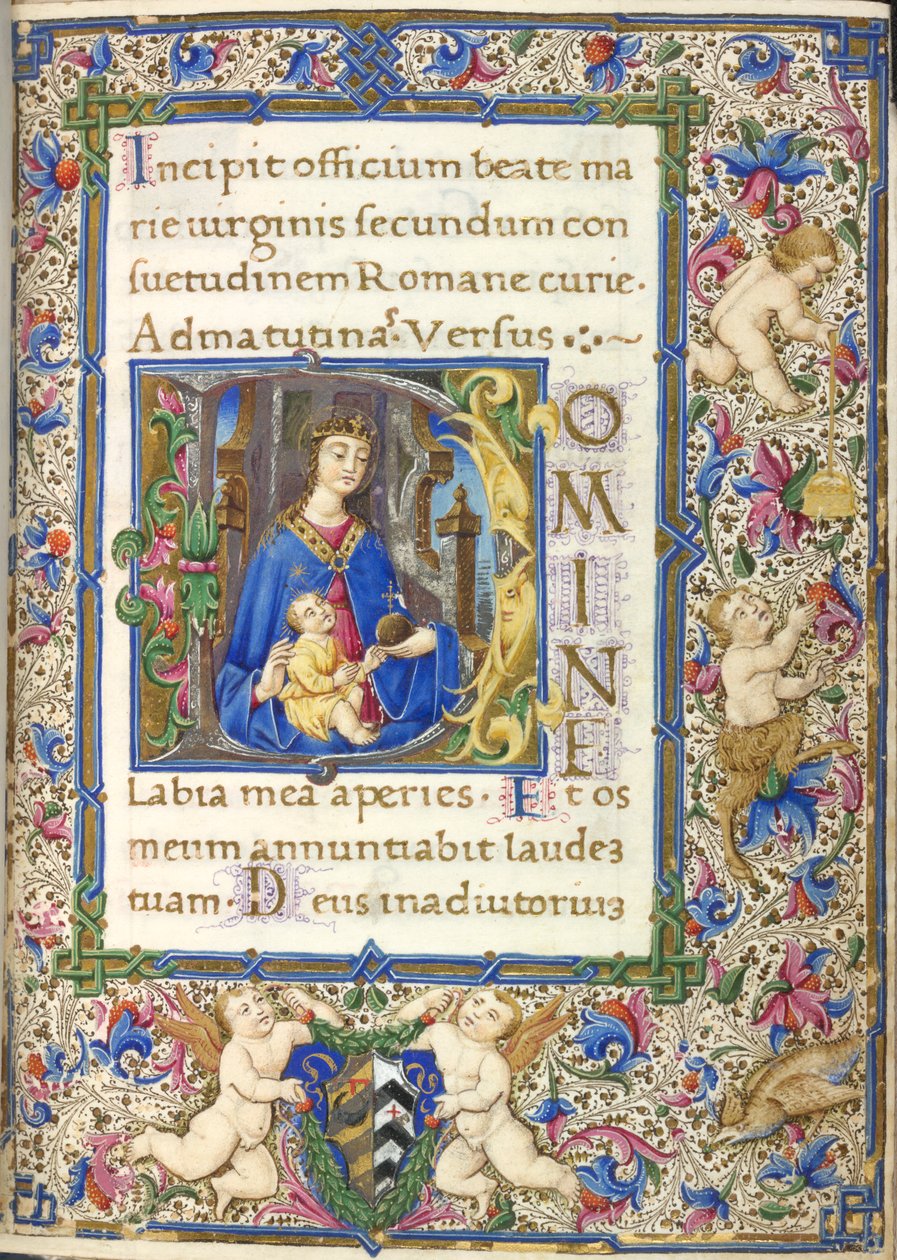 Incipit officium beate ma
rie uirginis secundum con
suetudinem Romane curie.
Ad matutinaꝭ. Versus
DOMINE
Labia mea aperies. Et os
meum annuntiabit laudeꝫ
tuam. Deus in adiutoriuꝫ